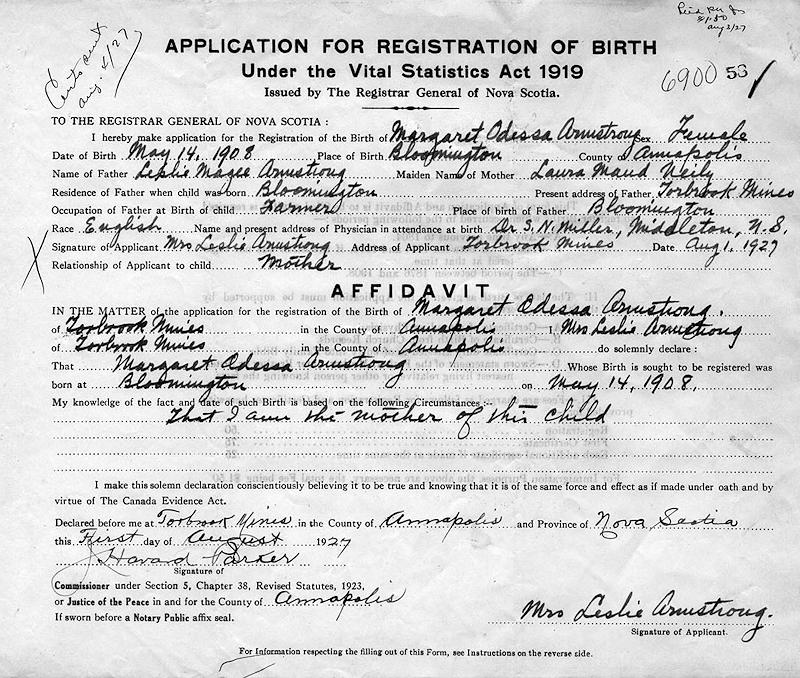 aug 2/27
aug. 4/27
APPLICATION FOR REGISTRATION OF BIRTH
Under the Vital Statistics Act 1919
Issued by The Registrar General of Nova Scotia.
6900 53
TO THE REGISTRAR GENERAL OF NOVA SCOTIA :
I hereby make application for the Registration of the Birth of Margaret Odessa Armstrong Sex Female
Date of Birth May 14, 1908 Place of Birth Bloomington County of Annapolis
Name of Father Leslie Magee Armstrong Maiden Name of Mother Laura Maud Veily
Residence of Father when child was born Bloomington Present address of Father Torbrook Mines
Occupation of Father at Birth of child Farmer Place of birth of Father Bloomington
Race English Name and present address of Physician in attendance at birth Dr S. N. Miller, Middleton, N.S.
Signature of Applicant Mrs Leslie Armstrong Address of Applicant Torbrook Mines Date Aug 1, 1927
Relationship of Applicant to child Mother
AFFIDAVIT
IN THE MATTER of the application for the registration of the Birth of Margaret Odessa Armstrong.
of Torbrook Mines in the County of Annapolis I, Mrs Leslie Armstrong
of Torbrook Mines in the County of Annapolis do solemnly declare :
That Margaret Odessa Armstrong Whose Birth is sought to be registered was
born at Bloomington on May 14, 1908.
My knowledge of the fact and date of such Birth is based on the following Circumstances :-
That I am the mother of this child
I make this solemn declaration conscientiously believing it to be true and knowing that it is of the same force and effect as if made under oath and by
virtue of The Canada Evidence Act.
Declared before me at Torbrook Mines in the County of Annapolis and Province of Nova Scotia
this First day of August 1927
J Havard Parker
Signature of
Commissioner under Section 5, Chapter 38, Revised Statutes, 1923,
or Justice of the Peace in and for the County of Annapolis
If sworn before a Notary Public affix seal.
Mrs Leslie Armstrong.
Signature of Applicant.
For Information respecting the filling out of this Form, see Instructions on the reverse side.